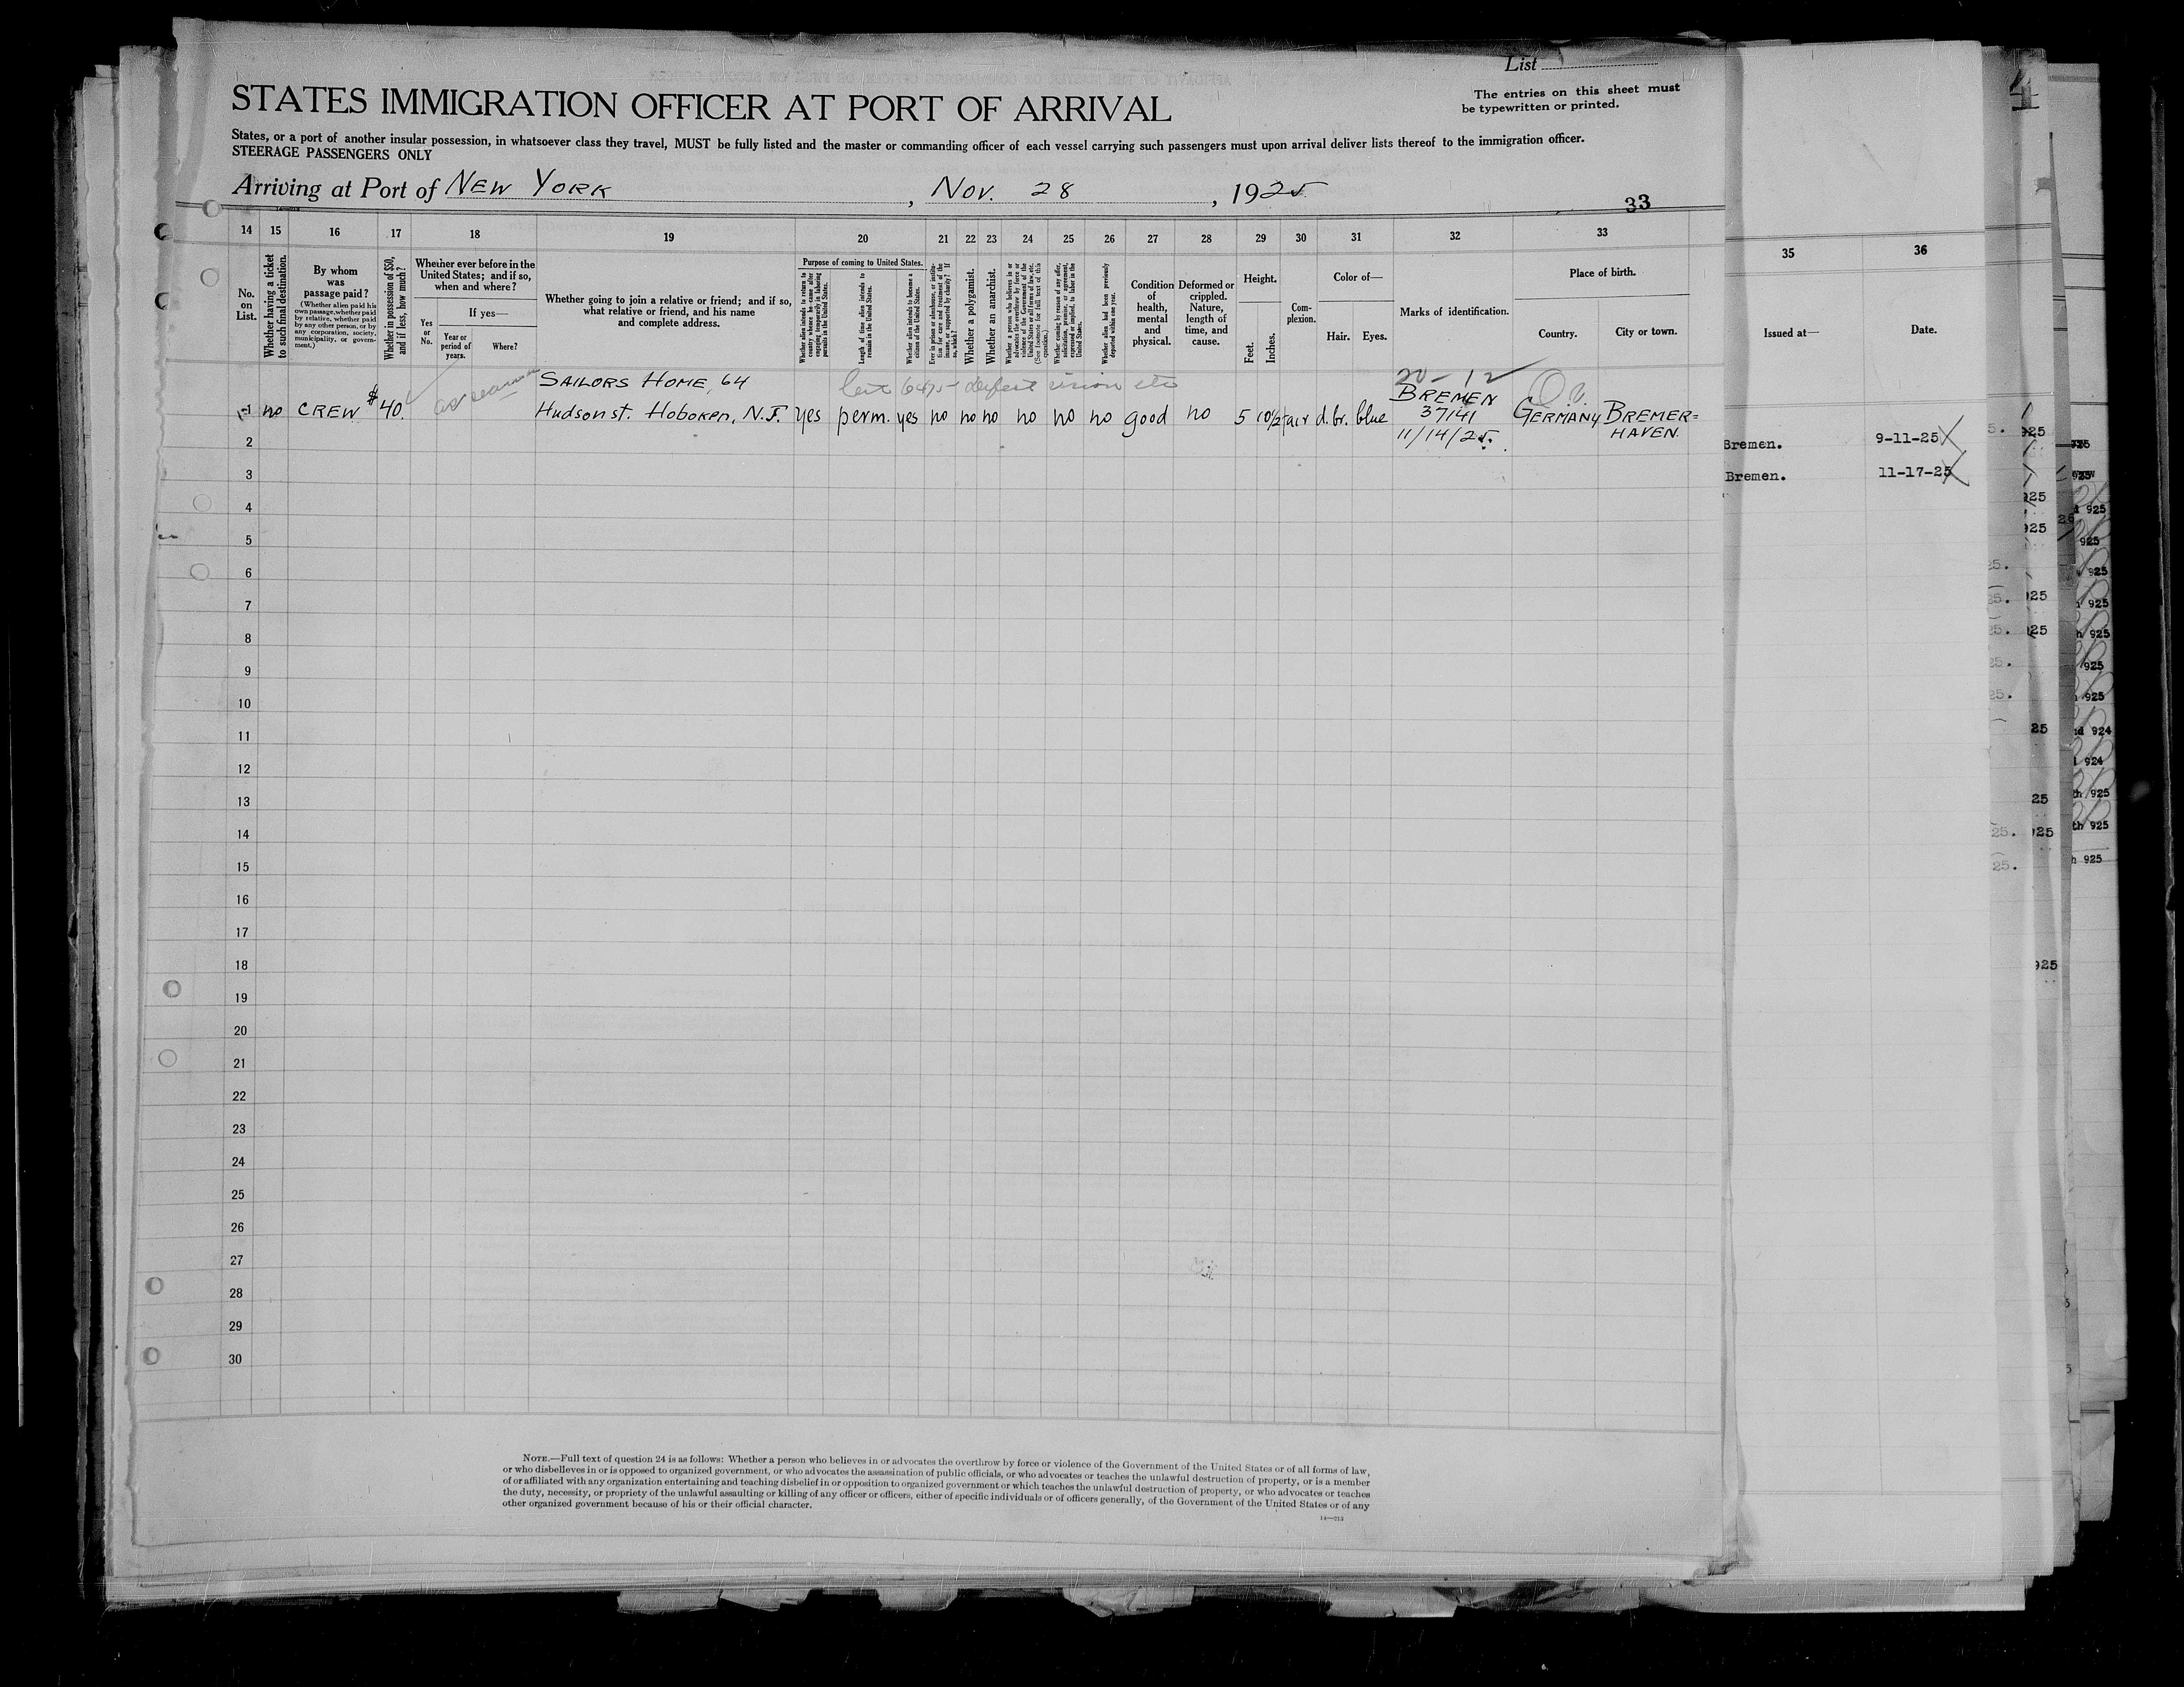 List
STATES IMMIGRATION OFFICER AT PORT OF ARRIVAL
The entries on this sheet must
be typewritten or printed.
States, or a port of another insular possession, in whatsoever class they travel, MUST be fully listed and the master or commanding officer of each vessel carrying such passengers must upon arrival deliver lists thereof to the immigration officer.
STEERAGE PASSENGERS ONLY
Arriving at Port of NEW YORK, Nov. 28, 1925
33
14 15 16 17 18 19 20 21 22 23 24 25 26 27 28 29 30 31 32 33 35 36
No. on List.
Whether having a ticket to such final destination.
By whom was passage paid?
(Whether alien paid his own passage, whether paid by relative, whether paid by any other person, or by any corporation, society, municipality, or government.)
Whether in possession of $50, and if less, how much?
Whether ever before in the United States; and if so, when and where?
Yes or No.
If yes—
Year or period of years.
Where?
Whether going to join a relative or friend; and if so, what relative or friend, and his name and complete address.
Purpose of coming to United States.
Whether alien intends to return to country whence he came after engaging temporarily in laboring pursuits in the United States.
Length of time alien intends to remain in the United States.
Whether alien intends to become a citizen of the United States.
Ever in prison or almshouse, or institution for care and treatment of the insane, or supported by charity? If so, which?
Whether a polygamist.
Whether an anarchist.
Whether a person who believes in or advocates the overthrow by force or violence of the Government of the United States or all forms of law, etc. (See footnote for full text of this question.)
Whether coming by reason of any offer, solicitation, promise, or agreement, expressed or implied, to labor in the United States.
Whether alien had been previously deported within one year.
Condition of health, mental and physical.
Deformed or crippled. Nature, length of time, and cause.
Height.
Feet. Inches.
Complexion.
Color of—
Hair. Eyes.
Marks of identification.
Place of birth.
Country. City or town.
Issued at—
Date.
SAILORS HOME, 64
20-12
BREMEN
1 no CREW $40. Hudson st. Hoboken, N.J. yes perm. yes no no no no no no good no 5 10½ fair d.br. blue 37141 GERMANY BREMER=
11/14/25. HAVEN.
Bremen. 9-11-25
Bremen. 11-17-25
2
3
4
5
6
7
8
9
10
11
12
13
14
15
16
17
18
19
20
21
22
23
24
25
26
27
28
29
30
NOTE.—Full text of question 24 is as follows: Whether a person who believes in or advocates the overthrow by force or violence of the Government of the United States or of all forms of law,
or who disbelieves in or is opposed to organized government, or who advocates the assassination of public officials, or who advocates or teaches the unlawful destruction of property, or is a member
of or affiliated with any organization entertaining and teaching disbelief in or opposition to organized government or which teaches the unlawful destruction of property, or who advocates or teaches
the duty, necessity, or propriety of the unlawful assaulting or killing of any officer or officers, either of specific individuals or of officers generally, of the Government of the United States or of any
other organized government because of his or their official character.
14—213